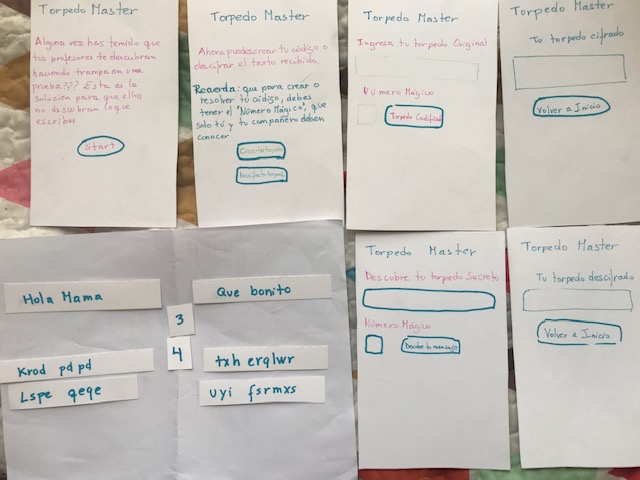 Torpedo Master
Alguna vez has temido que
tus profesores te descubran
haciendo trampa en una
prueba??? Esta es la
solución para que ellos
no descubran lo que
escribes
Start
Torpedo Master
Ahora puedes crear tu código o
descifrar el texto recibido.
Recuerda: que para crear o
resolver tu código, debes
tener el 'Número Mágico', que
solo tú y tu compañero deben
conocer
torpedo
torpedo
Torpedo Master
Ingresa tu torpedo Original
Número Mágico
Torpedo Codificado
Torpedo Master
Tu torpedo cifrado
Volver a Inicio
Hola Mama
Que bonito
3
4
Krod pdpd
txh erqlwr
Lspe qeqe
uyi fsrmxs
Torpedo Master
Descubre tu torpedo Secreto
Número Mágico
Descubre tu mensaje
Torpedo Master
Tu torpedo descifrado
Volver a Inicio